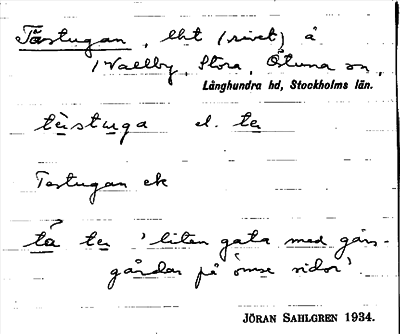 Tåstugan, lht (rivet) å
Vallby, Stora, Östuna sn,
Långhundra hd, Stockholms län.
tèstuga el. te
Testugan ek
tå te 'liten gata med gärs-
gårdar på ömse sidor'.
JÖRAN SAHLGREN 1934.